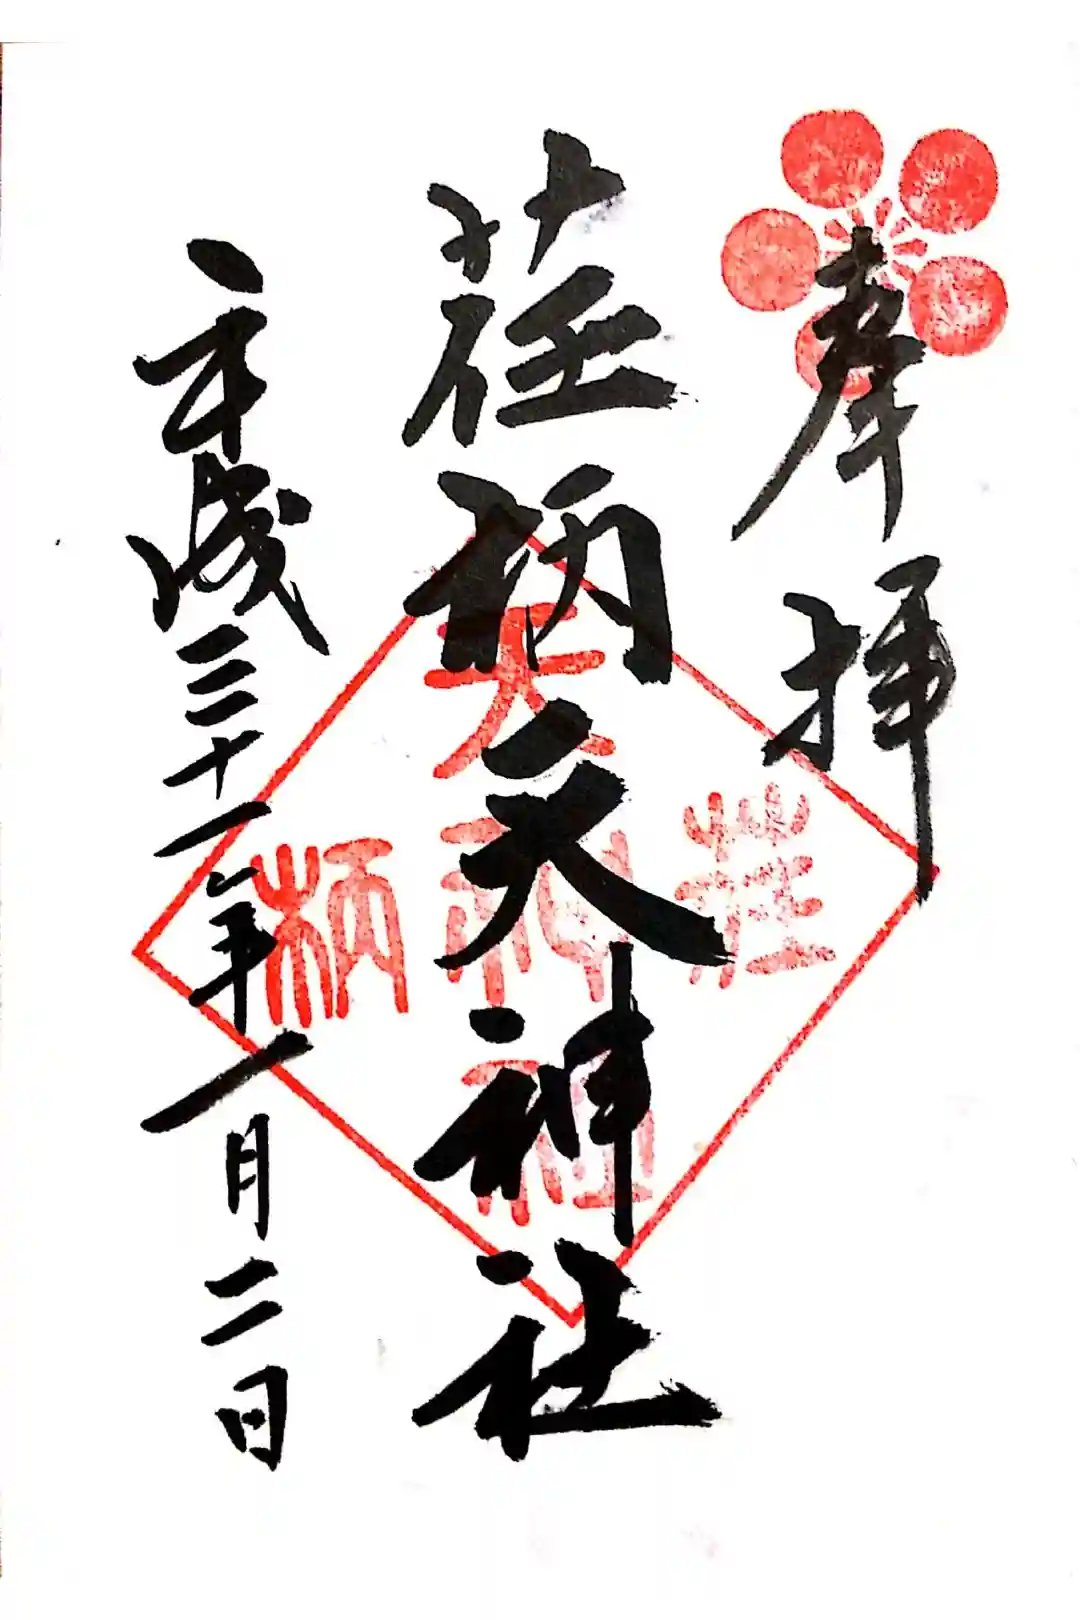 奉拝
荏柄天神社
平成三十一年一月二日
天
荏神柄
社